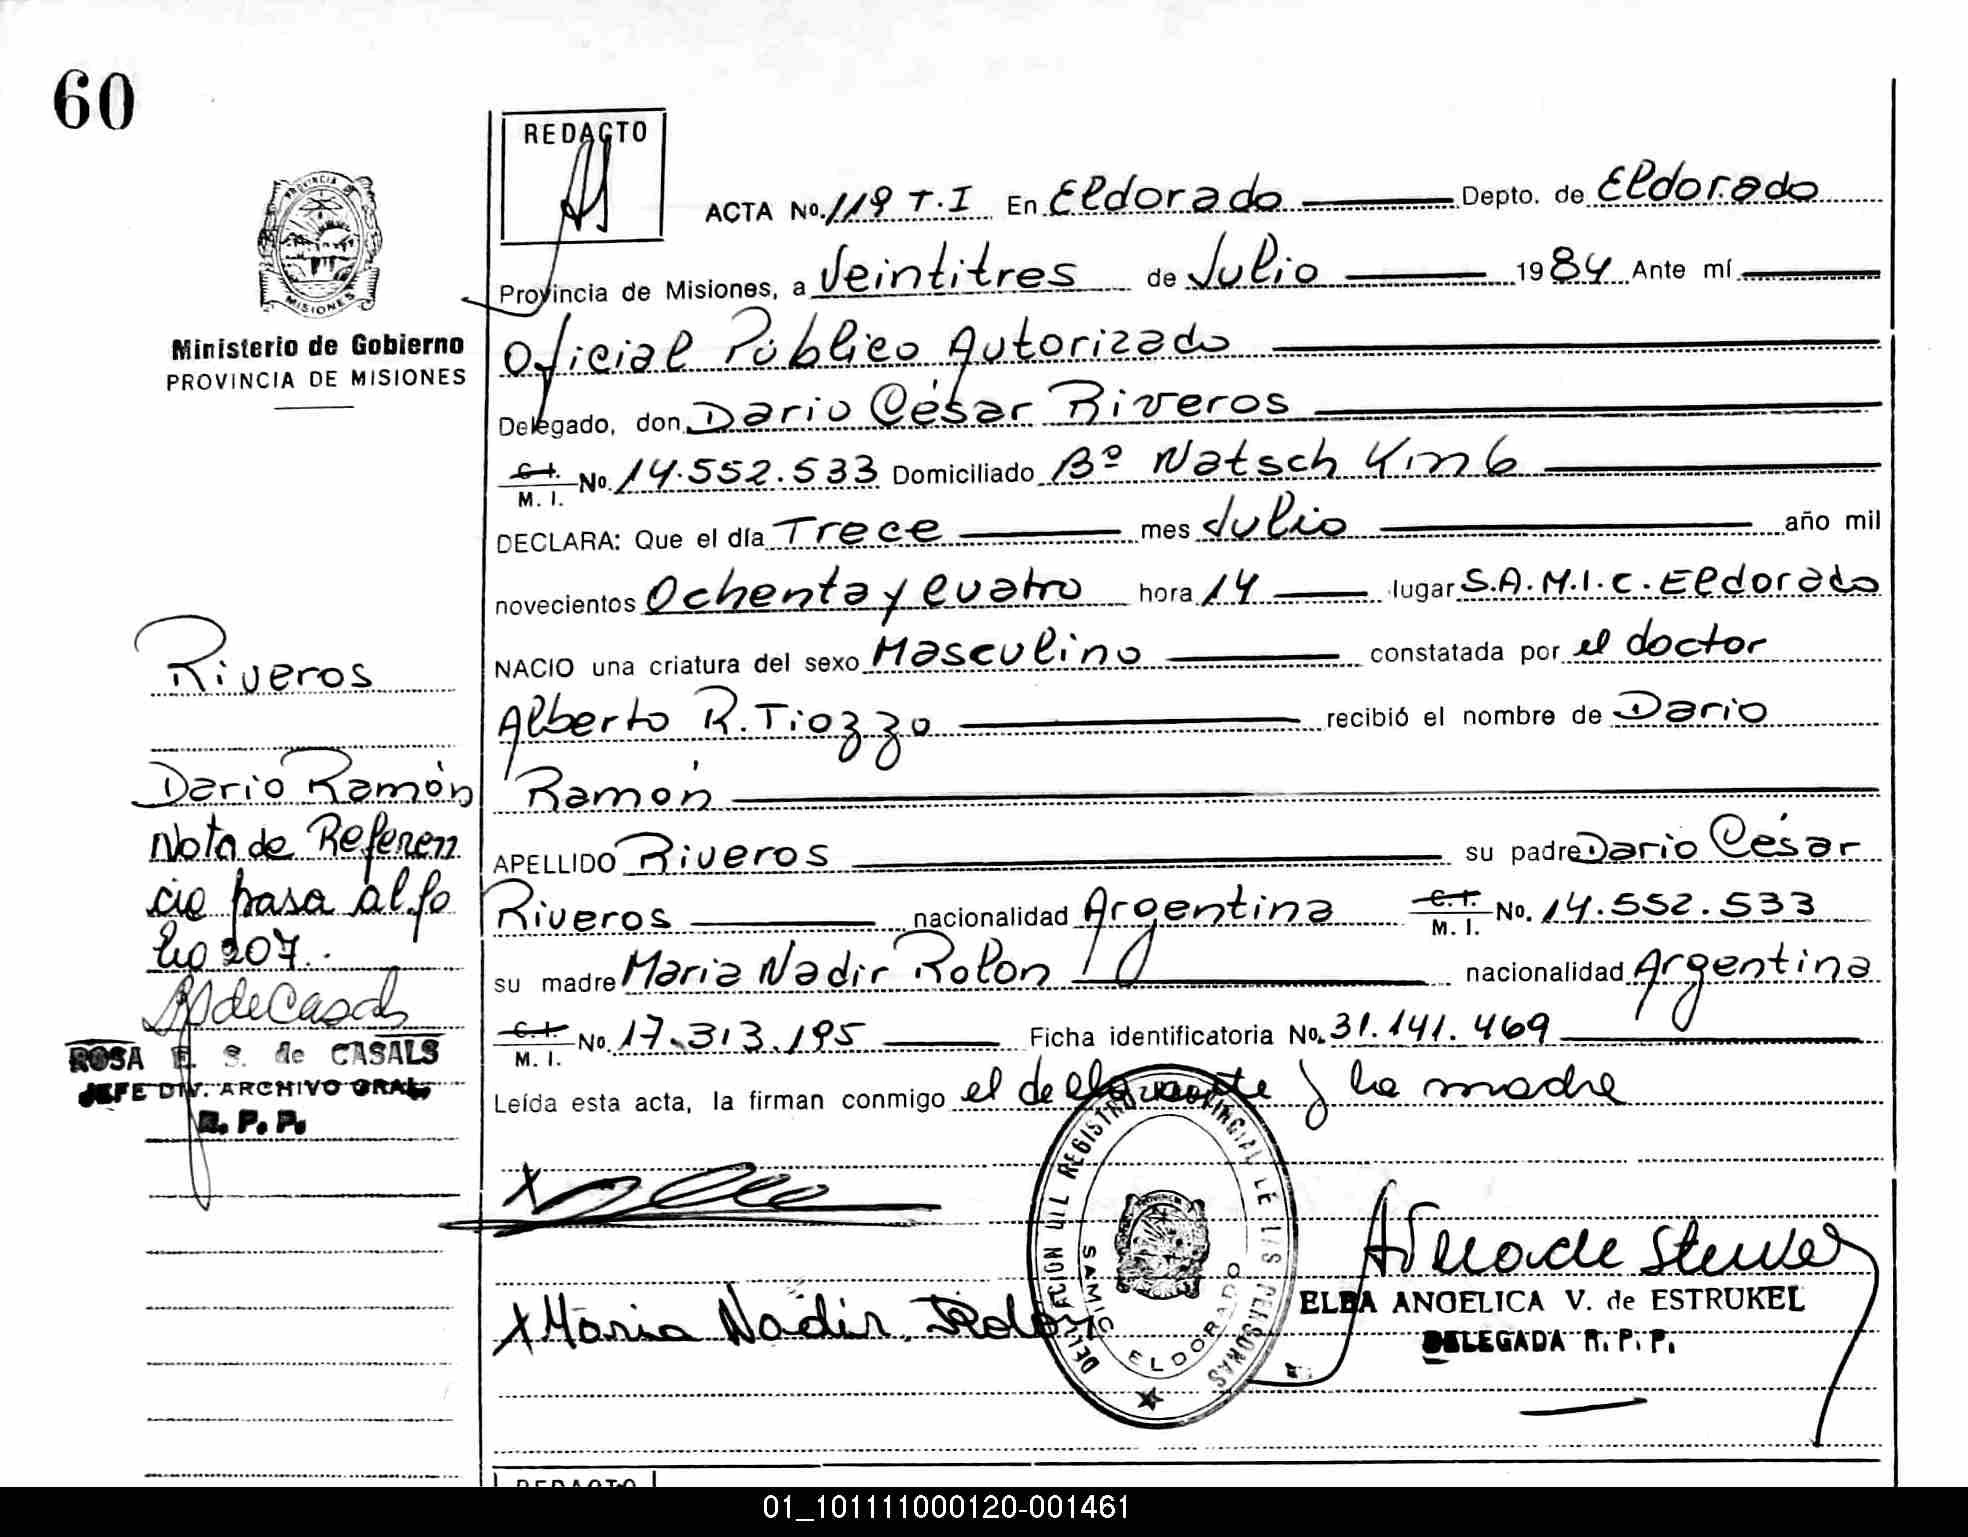 60
REDACTO
PROVINCIA DE
MISIONES
Ministerio de Gobierno
PROVINCIA DE MISIONES
ACTA No. 119 T.I En Eldorado Depto. de Eldorado
Provincia de Misiones, a Veintitres de Julio 1984 Ante mí
Oficial Público Autorizado
Delegado, don Dario César Riveros
C.I. M. I. No. 14.552.533 Domiciliado Bº Natsch Km 6
DECLARA: Que el día Trece mes Julio año mil
novecientos Ochenta y cuatro hora 14 lugar S.A.M.I.C. Eldorado
NACIO una criatura del sexo Masculino constatada por el doctor
Alberto R. Tiozzo recibió el nombre de Dario
Ramón
APELLIDO Riveros su padre Dario César
Riveros nacionalidad Argentina C.I. M. I. No. 14.552.533
su madre Maria Nadir Rolon nacionalidad Argentina
C.I. M. I. No. 17.313.195 Ficha identificatoria No. 31.141.469
Leída esta acta, la firman conmigo el declarante y la madre
Riveros
Dario Ramón
Nota de Referen
cia pasa al fo
lio 207.
ROSA E. S. de CASALS
JEFE DIV. ARCHIVO GRAL.
R. P. P.
X
X Maria Nadir Rolon
DELEGACION REGISTRO PROVINCIAL DE LAS PERSONAS
SAMIC ELDORADO
ELBA ANGELICA V. de ESTRUKEL
DELEGADA R. P. P.
REDACTO
01_101111000120-001461